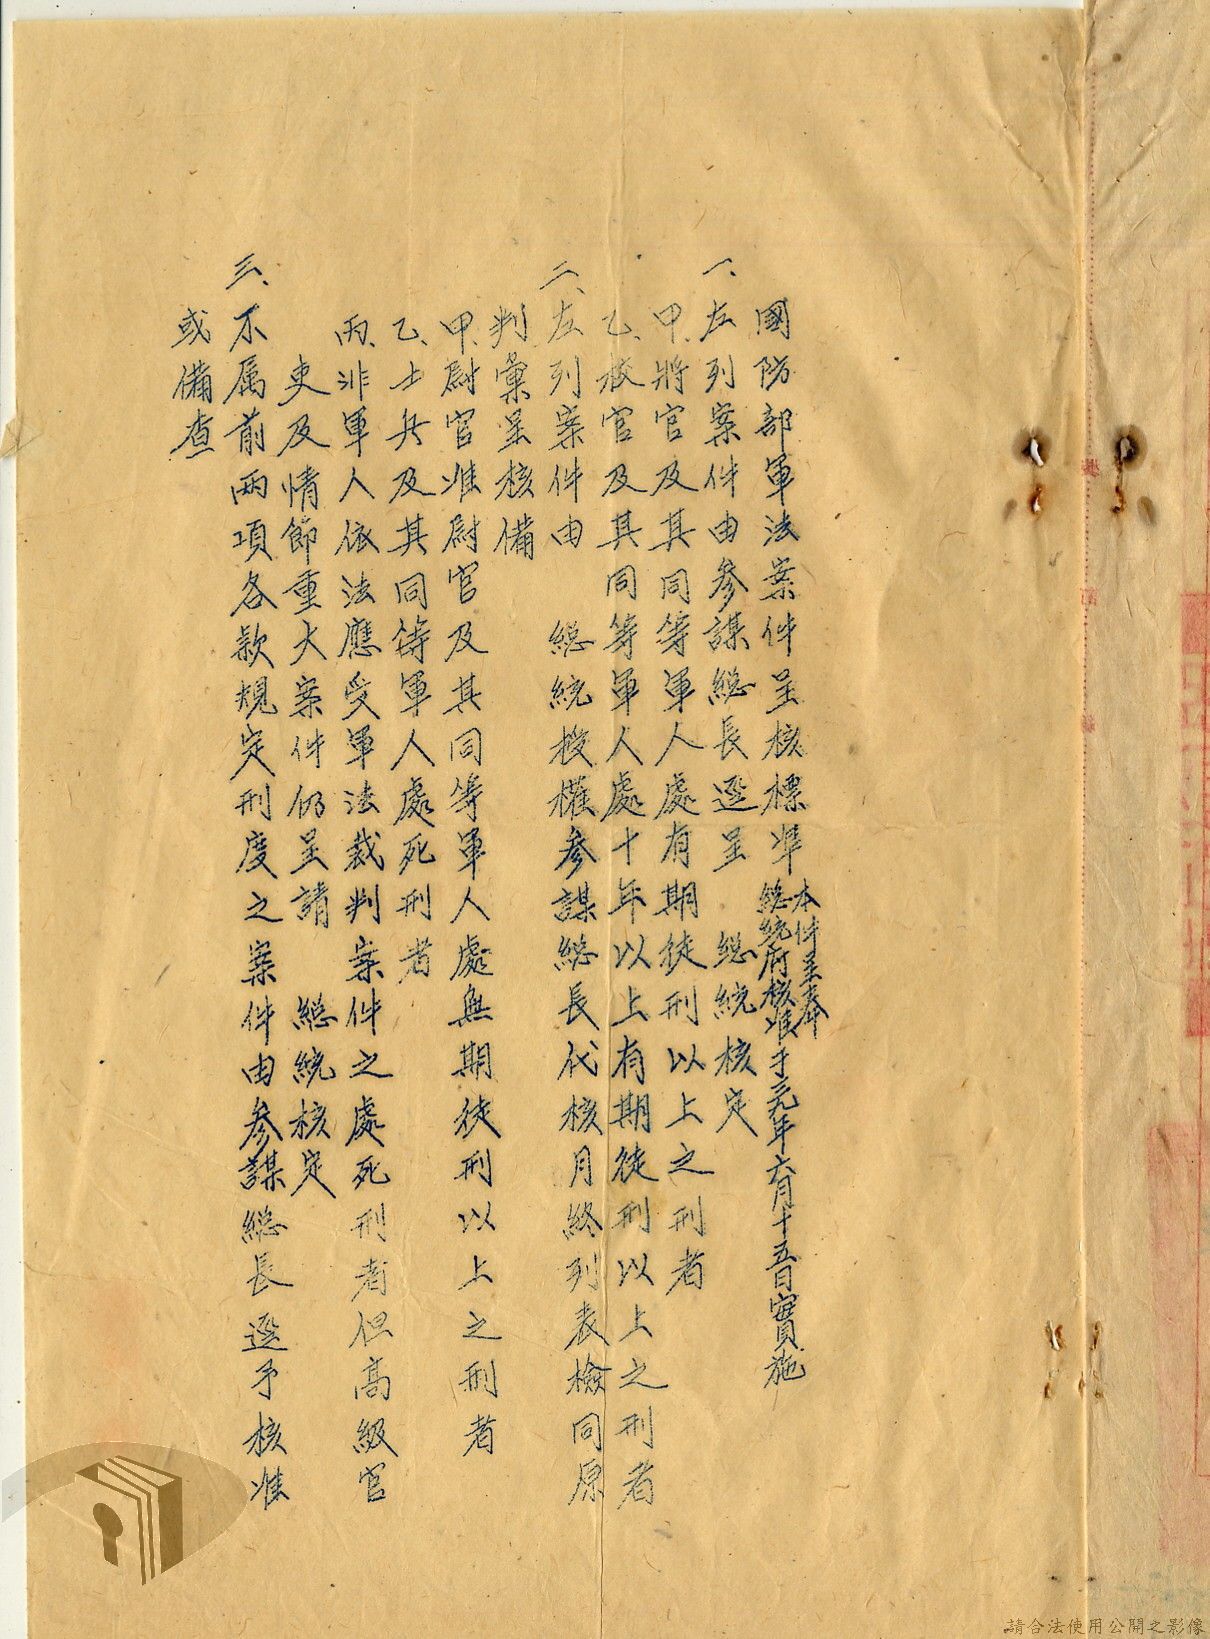 國防部軍法案件呈核標準 本件呈奉
總統府核准于三九年六月十五日實施
一、左列案件由參謀總長逕呈 總統核定
甲、將官及其同等軍人處有期徒刑以上之刑者
乙、校官及其同等軍人處十年以上有期徒刑以上之刑者
二、左列案件由 總統授權參謀總長代核月終列表檢同原
判彙呈核備
甲、尉官准尉官及其同等軍人處無期徒刑以上之刑者
乙、士兵及其同等軍人處死刑者
丙、非軍人依法應受軍法裁判案件之處死刑者但高級官
吏及情節重大案件仍呈請 總統核定
三、不屬前兩項各款規定刑度之案件由參謀總長逕予核准
或備查
請合法使用公開之影像